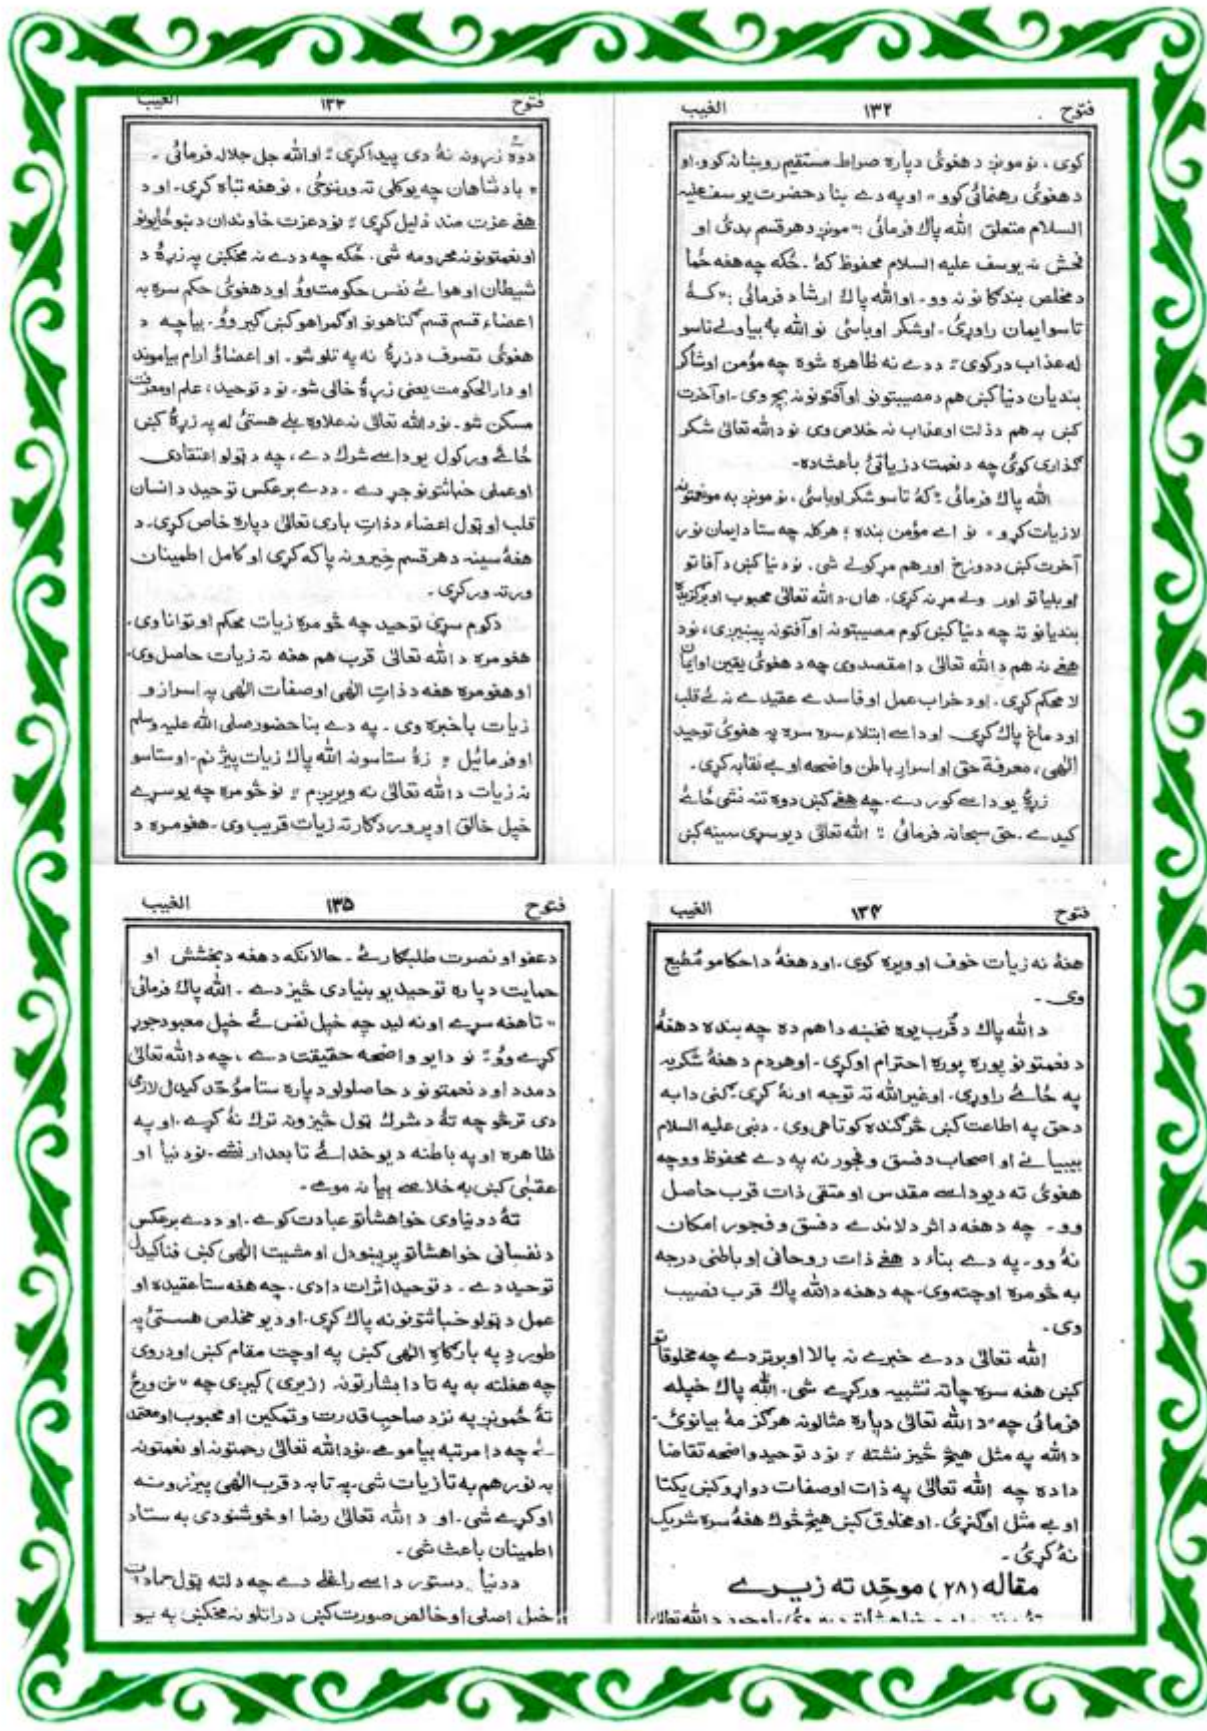 فتوح ۱۳۲ الغیب
کوی، نو مونږ دهغوئ دپاره صراط مستقیم روښانه کوو. او
دهغوئ رهنمائی کوو» اوپه دے بنا دحضرت یوسف علیه
السلام متعلق الله پاك فرمائی :«مونږ دهرقسم بدئ او
فحش نه یوسف علیه السلام محفوظ کهٔ. ځکه چه هغه ځما
دمخلص بندګانو نه وو. اوالله پاك ارشاد فرمائی :«کهٔ
تاسو ایمان راوړئ. اوشکر اوباسئ نو الله به بیا ولے تاسو
له عذاب درکوی: ددے نه ظاهره شوه چه مؤمن اوشاکر
بندیان دنیا کښ هم دمصیبتونو اوآفتونونه بچ وی. اوآخرت
کښ به هم دذلت اوعذاب نه خلاص وی نو دالله تعالیٰ شکر
ګذاری کوئ چه دنعمت دزیاتئ باعث ده.
الله پاك فرمائی :کهٔ تاسو شکر اوباسئ، نو مونږ به مو نعمتونه
لا زیات کړو» نو اے مؤمن بنده ؛ هرکله چه ستا دایمان نور
آخرت کښ ددوزخ اور هم مړ کولے شی. نو دنیا کښ دآفاتو
اوبلیاتو اور ولے مړ نه کړی. هاں دالله تعالیٰ محبوب اوبرګزیده
بندیانو ته چه دنیا کښ کوم مصیبتونه اوآفتونه پیښیږی، نود
هغے نه هم دالله تعالیٰ دا مقصد وی چه دهغوئ یقین اوایمان
لا محکم کړی. اود خراب عمل اوفاسدے عقیدے نه ئے قلب
اود ماغ پاك کړی اوداسے ابتلاء سره سره په هغوئ توحید
الٰهی، معرفة حق او اسرارِ باطن واضحه اوبے نقابه کړی.
زړهٔ یو داسے کور دے. چه هغے کښ دوه تنه نشی ځائے
کیدے. حق سبحانه فرمائی : الله تعالیٰ دیو سړی سینه کښ
فتوح ۱۳۳ الغیب
دوهٔ زړونه نهٔ دی پیدا کړی: اوالله جل جلاله فرمائی.
«بادشاهان چه یو کلی ته ورننوځی، نو هغه تباه کړی. اود
هغے عزت مند ذلیل کړی: نود عزت خاوندان دښو ځایونو
اونعمتونونه محرومه شی. ځکه چه ددے نه مخکښ په زړهٔ د
شیطان اوهوائے نفس حکومت وؤ اودهغوئ حکم سره به
اعضاء قسم قسم ګناهونو اوګمراهو کښ ګیر وؤ. بیا چه د
هغوئ تصرف دزړهٔ نه په تلو شو. او اعضاؤ ارام بیاموند
او دارالحکومت یعنی زړهٔ خالی شو. نو د توحید، علم اومعرفت
مسکن شو. نودالله تعالیٰ نه علاوه بلے هستئ له په زړهٔ کښ
ځائے ورکول یو داسے شرك دے، چه دټولو اعتقادی
اوعملی خباثتونو جړ دے. ددے برعکس توحید دانسان
قلب اوټول اعضاء دذاتِ باری تعالیٰ دپاره خاص کړی. د
هغهٔ سینه دهرقسم خیرونه پاکه کړی اوکامل اطمینان
ورته ورکړی.
دکوم سړی توحید چه څومره زیات محکم اوتوانا وی.
هغومره دالله تعالیٰ قرب هم هغه ته زیات حاصل وی.
اوهغومره هغه دذاتِ الٰهی اوصفات الٰهی په اسرارو
زیات باخبره وی. په دے بنا حضور صلی الله علیه وسلم
اوفرمائیل : زهٔ ستاسو نه الله پاك زیات پیژنم. اوستاسو
نه زیات دالله تعالیٰ نه ویریږم : نو څومره چه یو سړے
خپل خالق اوپروردګار ته زیات قریب وی. هغومره د
فتوح ۱۳۴ الغیب
هغهٔ نه زیات خوف اوویره کوی. اودهغهٔ داحکامو مُطیع
وی.
دالله پاك دقُرب یوه نخښه دا هم ده چه بنده دهغهٔ
دنعمتونو پوره پوره احترام اوکړی. اوهردم دهغهٔ شکریه
په ځائے راوړی. اوغیرالله ته توجه اونهٔ کړی. ګنی دا به
دحق په اطاعت کښ څرګنده کوتاهی وی. دنبی علیه السلام
بیبیانے او اصحاب دفسق وفجور نه په دے محفوظ وو چه
هغوئ ته دیو داسے مقدس اومتقی ذات قرب حاصل
وو. چه دهغه داثر دلاندے دفسق وفجور امکان
نهٔ وو. په دے بناء د هغے ذات روحانی اوباطنی درجه
به څومره اوچته وی. چه دهغه دالله پاك قرب نصیب
وی.
الله تعالیٰ ددے خبرے نه بالا اوبرتر دے چه مخلوقاتو
کښ هغه سره چاته تشبیه ورکړے شی. الله پاك خپله
فرمائی چه «دالله تعالیٰ دپاره مثالونه هرګز مهٔ بیانوئ.
دالله په مثل هیڅ څیز نشته : نو د توحید واضحه تقاضا
داده چه الله تعالیٰ په ذات اوصفات دواړو کښ یکتا
اوبے مثل اوګنړئ. اومخلوق کښ هیڅ څوك هغهٔ سره شریك
نهٔ کړئ.
مقاله (۲۸) موحّد ته زیرے
فتوح ۱۳۵ الغیب
دعفو اونصرت طلبګار ئے. حالانکه دهغه دبخشش او
حمایت دپاره توحید یو بنیادی څیز دے. الله پاك فرمائی
«تا هغه سړے اونه لید چه خپل نفس ئے خپل معبود جوړ
کړے وؤ: نو دا یو واضحه حقیقت دے، چه دالله تعالیٰ
دمدد اود نعمتونو دحاصلولو دپاره ستا مؤحّد کیدل لازمی
دی ترڅو چه تهٔ دشرك ټول څیزونه ترك نهٔ کړے. اوپه
ظاهره اوپه باطنه دیو خدائے تابعدار نشے. نو دنیا او
عقبٰی کښ به خلاصے بیا نه مومے.
تهٔ ددنیاوی خواهشاتو عبادت کوے. اوددے برعکس
دنفسانی خواهشاتو پریښودل اومشیت الٰهی کښ فنا کیدل
توحید دے. دتوحید اثرات دا دی. چه هغه ستا عقیده او
عمل دټولو خباثتونو نه پاك کړی. اودیو مخلص هستئ په
طور دِ په بارګاهِ الٰهی کښ په اوچت مقام کښ اودروی
چه هلته به په تا دا بشارتونه (زیری) کیږی چه «نن ورځ
تهٔ ځمونږ په نزد صاحبِ قدرت وتمکین اومحبوب اومعتمد
ئے چه دا مرتبه بیا مومے. نودالله تعالیٰ رحمتونه اونعمتونه
به نور هم په تا زیات شی. په تا به دقرب الٰهی پیرزوینه
اوکړے شی. او دالله تعالیٰ رضا اوخوشنودی به ستا د
اطمینان باعث شی.
ددنیا دستور داسے راغلے دے چه دلته ټول
خپل اصلی اوخالص صورت کښ دراتلو نه مخکښ په یو